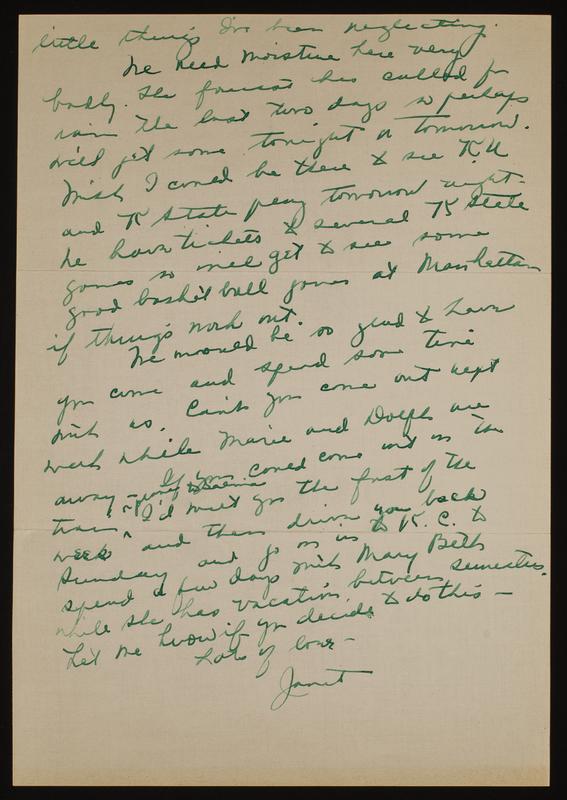 little things I've been neglecting.
We need moisture here very
badly. The forecast has called for
rain the last two days so perhaps
we'll get some tonight or tomorrow.
Wish I could be there to see K.U
and K State play tomorrow night.
We have tickets to several K State
games so we'll get to see some
good basket ball games at Manhattan
if things work out.
We would be so glad to have
you come and spend some time
with us. Can't you come out next
week while Marie and Dolph are
away - If you could come out on the
train to Salina I'd meet you the first of the
week and then drive you back
Sunday and go on in to K.C. to
spend a few days with Mary Beth
while she has vacation between semesters.
Let me know if you decide to do this -
Lots of love -
Janet